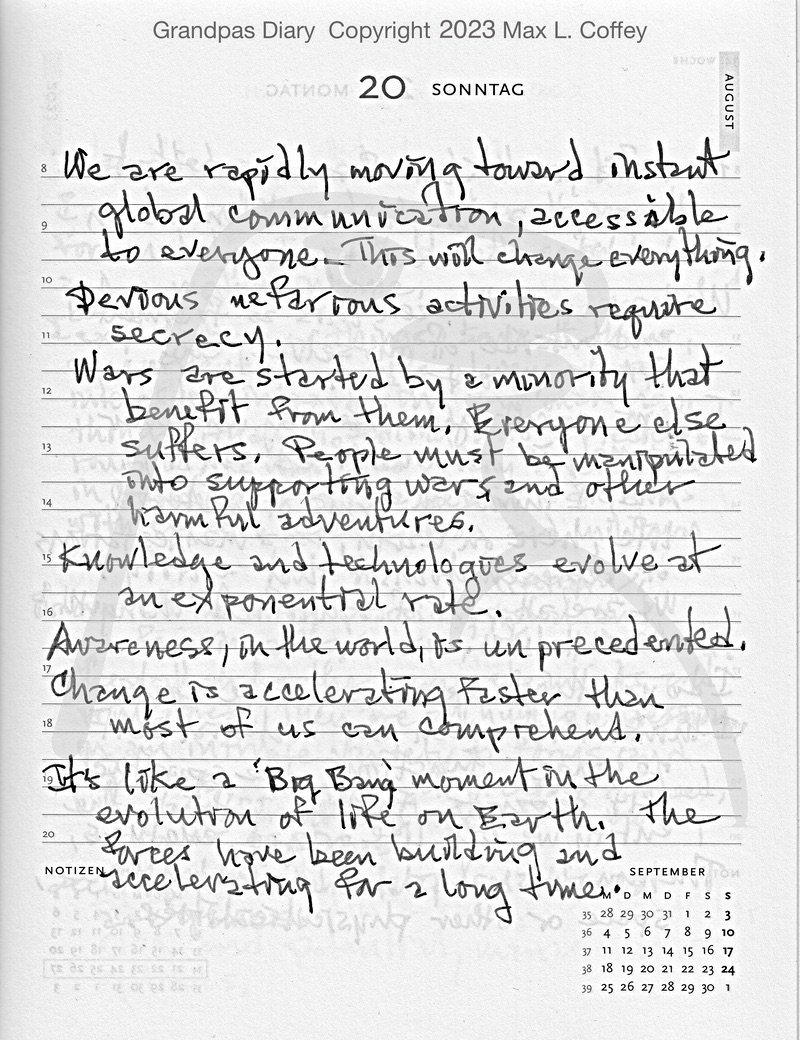 Grandpas Diary Copyright 2023 Max L. Coffey
20 SONNTAG
AUGUST
8 We are rapidly moving toward instant
global communication, accessible
9
to everyone. This will change everything.
10
Devious nefarious activities require
11 secrecy.
Wars are started by a minority that
12
benefit from them. Everyone else
13 suffers. People must be manipulated
into supporting wars and other
14
harmful adventures.
15 Knowledge and technologies evolve at
an exponential rate.
16
Awareness, in the world, is unprecedented.
17
Change is accelerating faster than
18 most of us can comprehend.
19 It's like a 'Big Bang' moment in the
evolution of life on Earth. The
20
forces have been building and
NOTIZEN accelerating for a long time.
SEPTEMBER
M D M D F S S
35 28 29 30 31 1 2 3
36 4 5 6 7 8 9 10
37 11 12 13 14 15 16 17
38 18 19 20 21 22 23 24
39 25 26 27 28 29 30 1